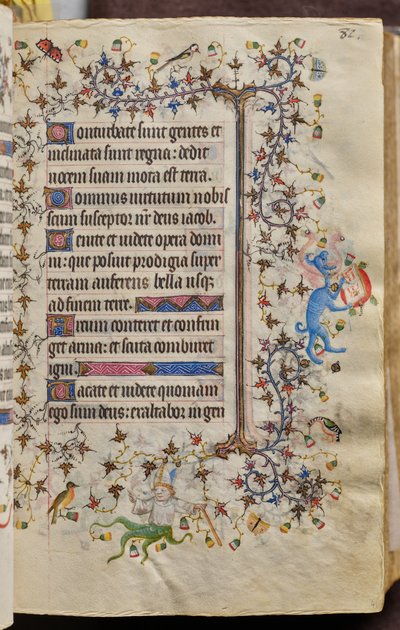 82.
Conturbate sunt gentes et
inclinata sunt regna: dedit
vocem suam mota est terra.
Dominus virtutum nobis
scum susceptor nr deus iacob.
Venite et videte opera domi
ni: que posuit prodigia super
terram auferens bella usq
ad finem terre.
Arcum conteret et confrin
get arma: et scuta comburet
igni.
Vacate et videte quoniam
ego sum deus: exaltabor in gen